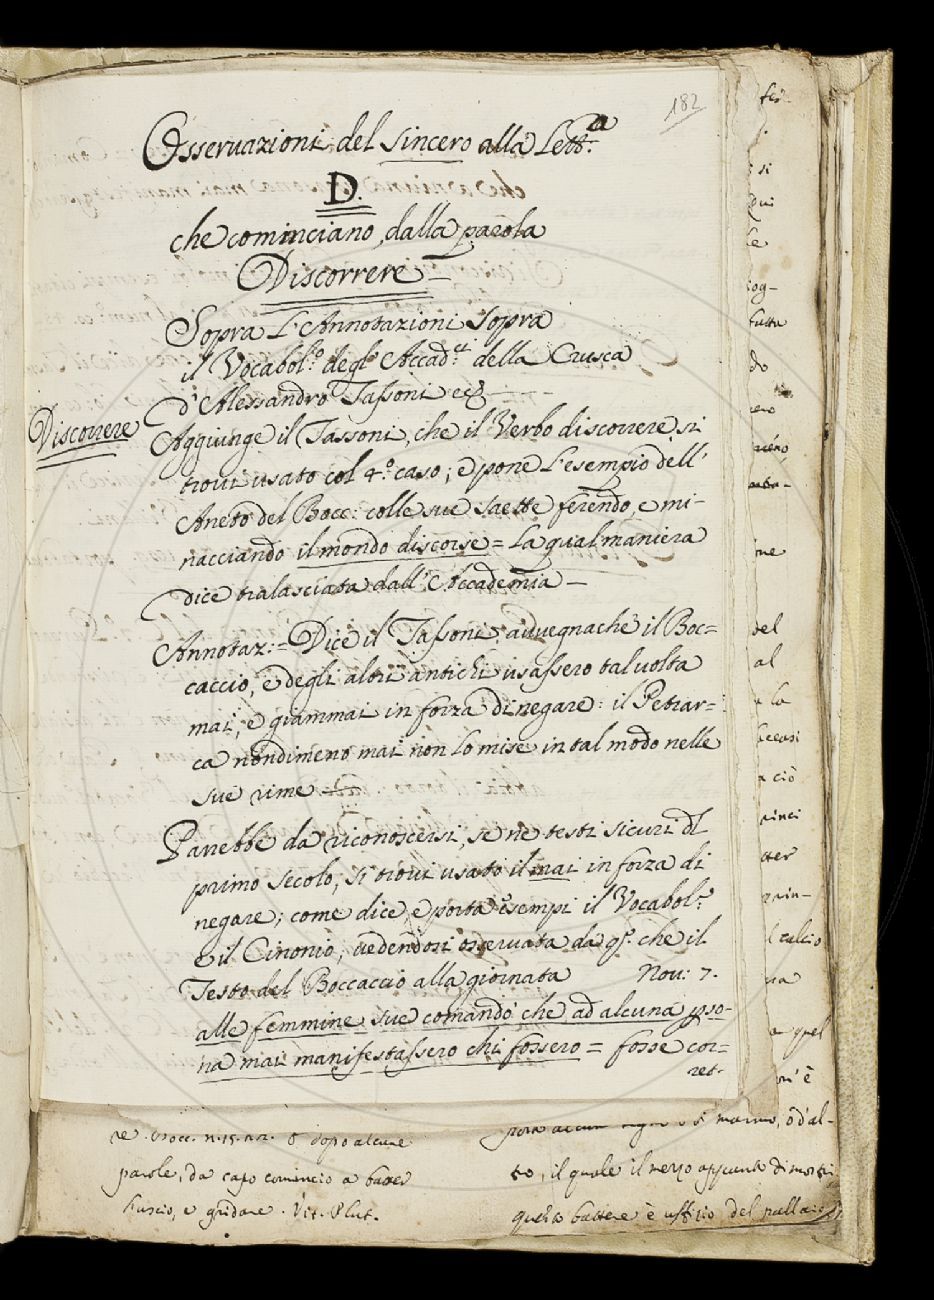 182
Osseruazioni del Sincero alla Lett.ᵃ
D.
che cominciano dalla parola
Discorrere
Sopra L'Annotazioni Sopra
il Vocabol.º degl' Accad.ci della Crusca
d'Alessandro Tassoni ec.
Discorrere
Aggiunge il Tassoni, che il Verbo discorrere si
trovi usato col 4.º caso; e pone l'esempio dell'
Ameto del Bocc: colle sue saette ferendo, e mi-
nacciando il mondo discorse = La qual maniera
dice tralasciata dall'Accademia –
Annotaz: = Dice il Tassoni auuegnache il Boc=
caccio, e degli altri antichi usassero talvolta
mai, e giammai in forza di negare: il Petrar=
ca nondimeno mai non lo mise in tal modo nelle
sue rime
Parrebbe da riconoscersi, se ne testi sicuri dl
primo secolo, si trovi usato il mai in forza di
negare; come dice, e porta esempi il Vocabol.º
e il Cinonio; uedendosi osseruata da q.º che il
Testo del Boccaccio alla giornata Nou: 7.
alle femmine sue comandò che ad alcuna pso-
na mai manifestassero chi fossero = fosse cor=
ret-
re. Bocc. n. 15. n. 22. E dopo alcune
parole, da capo comincio a batter
l'uscio, e gridare. Vit. Plut.
to, il quale il mezzo appunto di
questo battere è uffizio del
fei.
si
qui
e
log-
fatta
do
ero
ne
del
al
a la
a ciò
rinci
tter
prin-
l calcio
ra
a quel
on' è